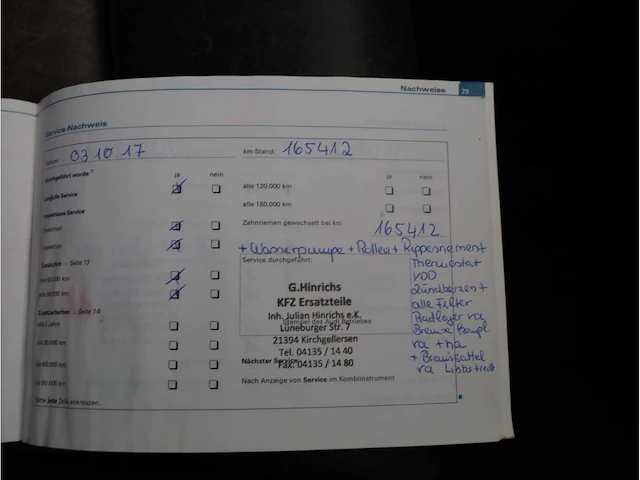 Nachweise 29
Service-Nachweis
Datum: 03 10 17
km-Stand: 165412
Durchgeführt wurde:
ja nein
LongLife Service
Inspektions Service
Ölwechsel
Inspektion
Zusätzlich: Seite 13
alle 60.000 km
alle 90.000 km
Zusatzarbeiten: Seite 14
alle 2 Jahre
alle 30.000 km
alle 60.000 km
alle 90.000 km
Bitte jede Zeile ankreuzen.
ja nein
alle 120.000 km
alle 180.000 km
Zahnriemen gewechselt bei km
165412
+ Wasserpumpe + Rollen + Rippenriement
Thermostat
VDD
Zündkerzen +
alle Filter
Radlager va
Bremse kompl
va + ha
+ Bremssattel
va Links +
Service durchgeführt:
G.Hinrichs
KFZ Ersatzteile
Inh. Julian Hinrichs e.K.
Stempel des Audi Betriebes
Lüneburger Str. 7
21394 Kirchgellersen
Tel. 04135 / 14 40
Nächster Service:
Fax: 04135 / 14 80
Nach Anzeige von Service im Kombiinstrument